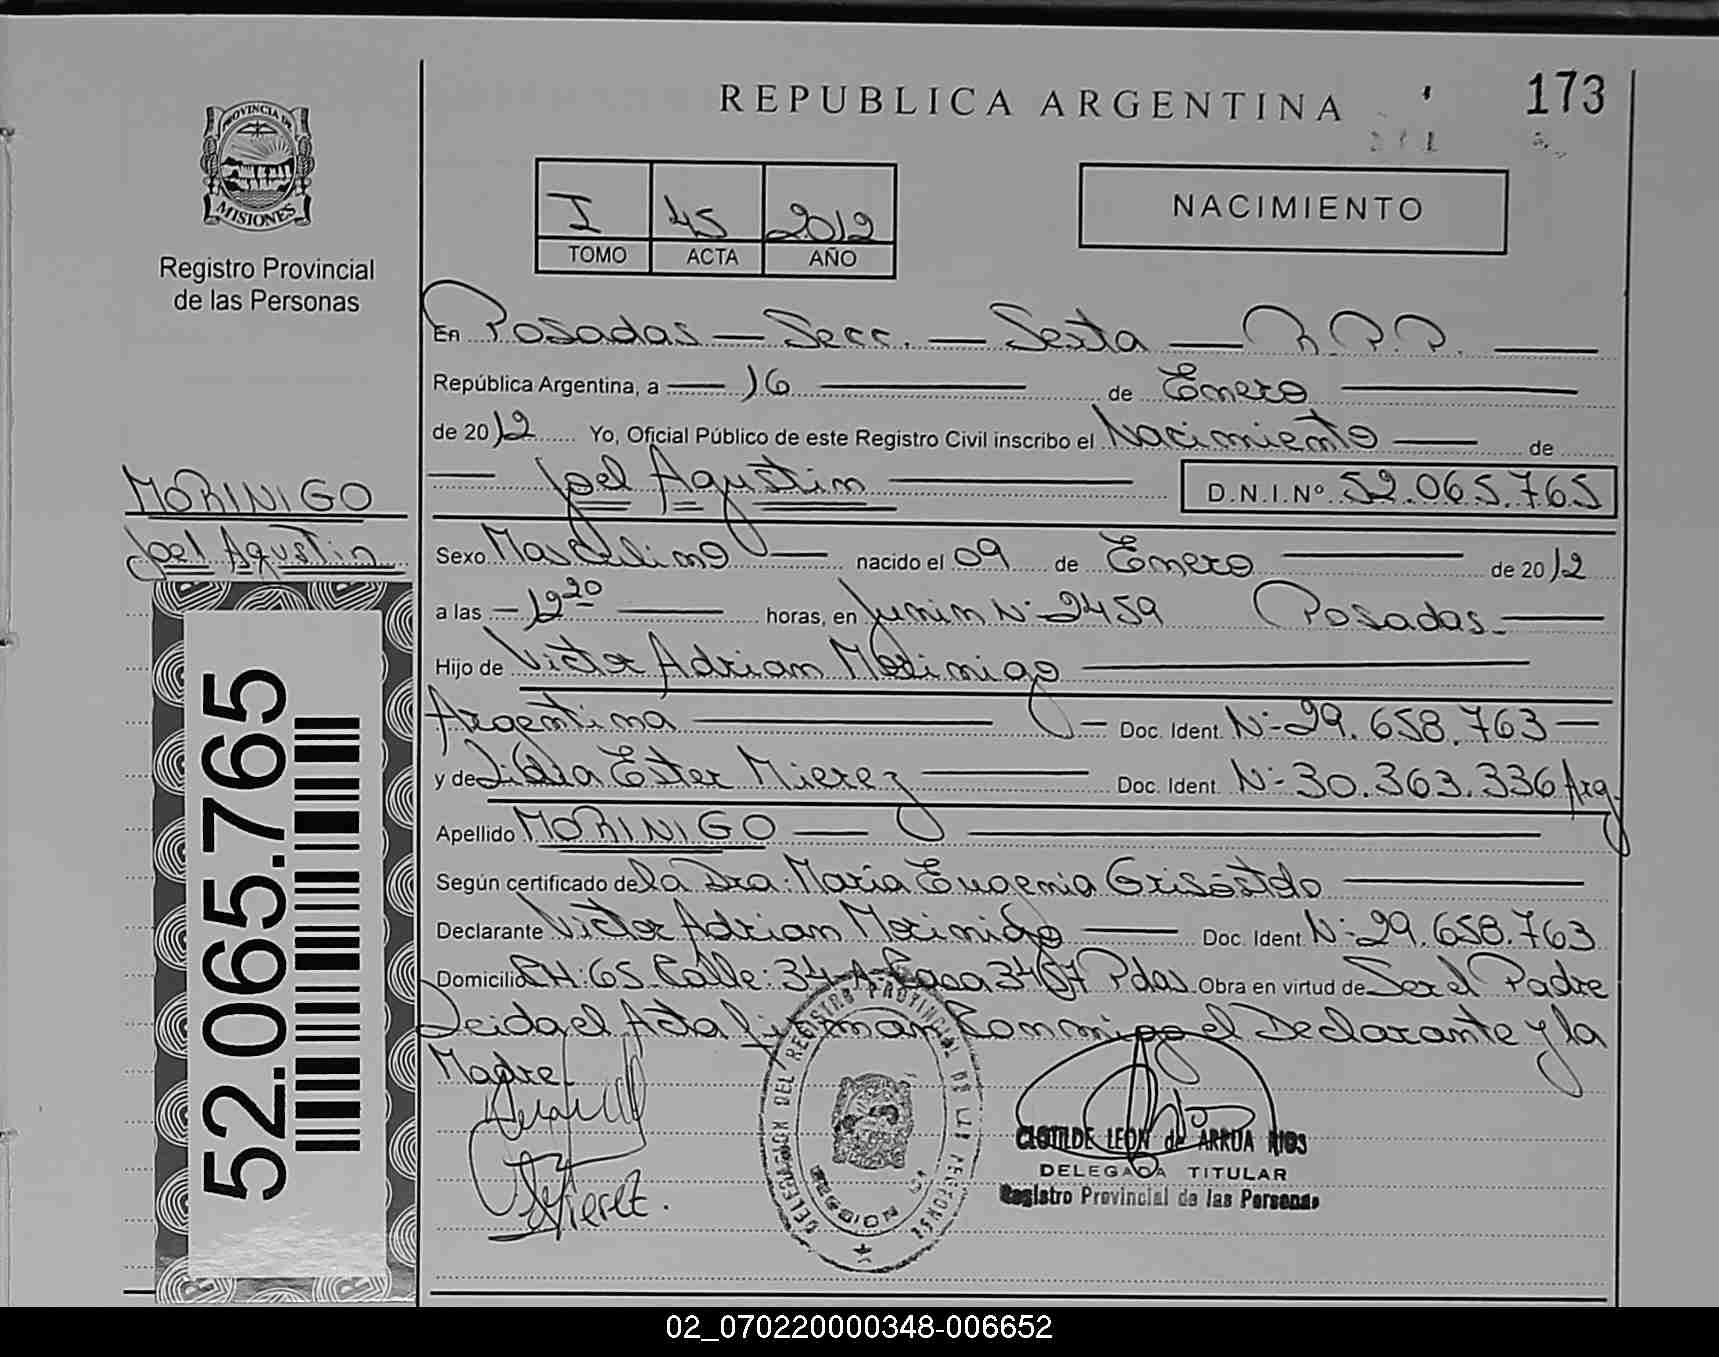 REPUBLICA ARGENTINA
173
PROVINCIA DE
MISIONES
Registro Provincial
de las Personas
I 45 2012
TOMO ACTA AÑO
NACIMIENTO
En Posadas — Secc. — Sexta — R.P.P. —
República Argentina, a — 16 — de Enero —
de 2012 Yo, Oficial Público de este Registro Civil inscribo el Nacimiento — de
— Joel Agustin — D.N.I.Nº 52.065.765
MORINIGO
Joel Agustin
Sexo Masculino — nacido el 09 de Enero — de 2012
a las — 12 20 — horas, en Junin Nº 2459 Posadas —
Hijo de Victor Adrian Morinigo —
Argentina — Doc. Ident. Nº 29.658.763 —
y de Ester Mierez — Doc. Ident. Nº 30.363.336 Arg.
Apellido MORINIGO —
Según certificado de la Dra. Maria Eugenia —
Declarante Victor Adrian Morinigo — Doc. Ident. Nº 29.658.763
Domicilio CH: 65 Calle: 34 A Casa 3467 Pdas Obra en virtud de Ser el Padre
Leida el Acta firman Conmigo el Declarante y la
Madre.
52.065.765
DELEGACION DEL REGISTRO PROVINCIAL DE LAS PERSONAS
REGION
CLOTILDE LEON de ARRUA RIOS
DELEGADA TITULAR
Registro Provincial de las Personas
02_070220000348-006652